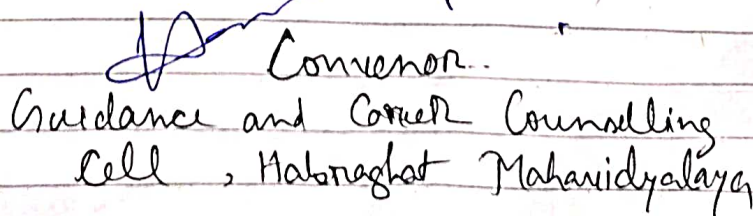 Convenor.
Guidance and Career Counselling
Cell, Habraghat Mahavidyalaya